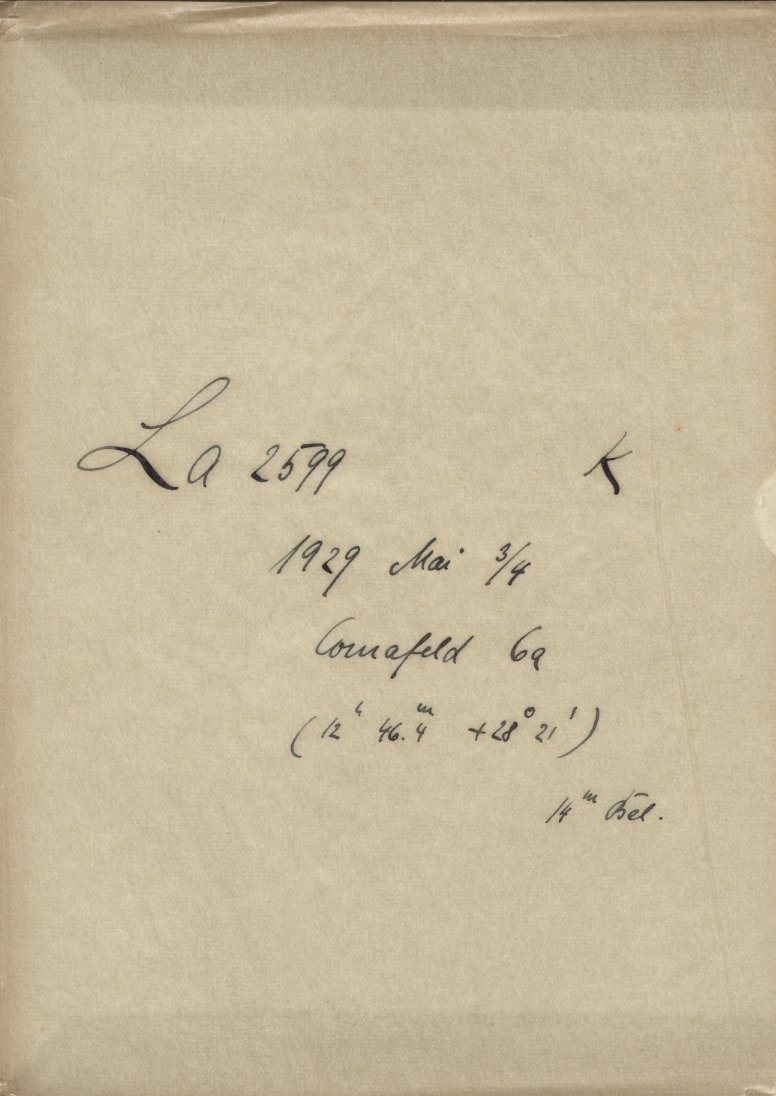 La 2599 K
1929 Mai 3/4
Comafeld 6a
(12ʰ 46.ᵐ4 +28° 21')
14ᵐ Bel.